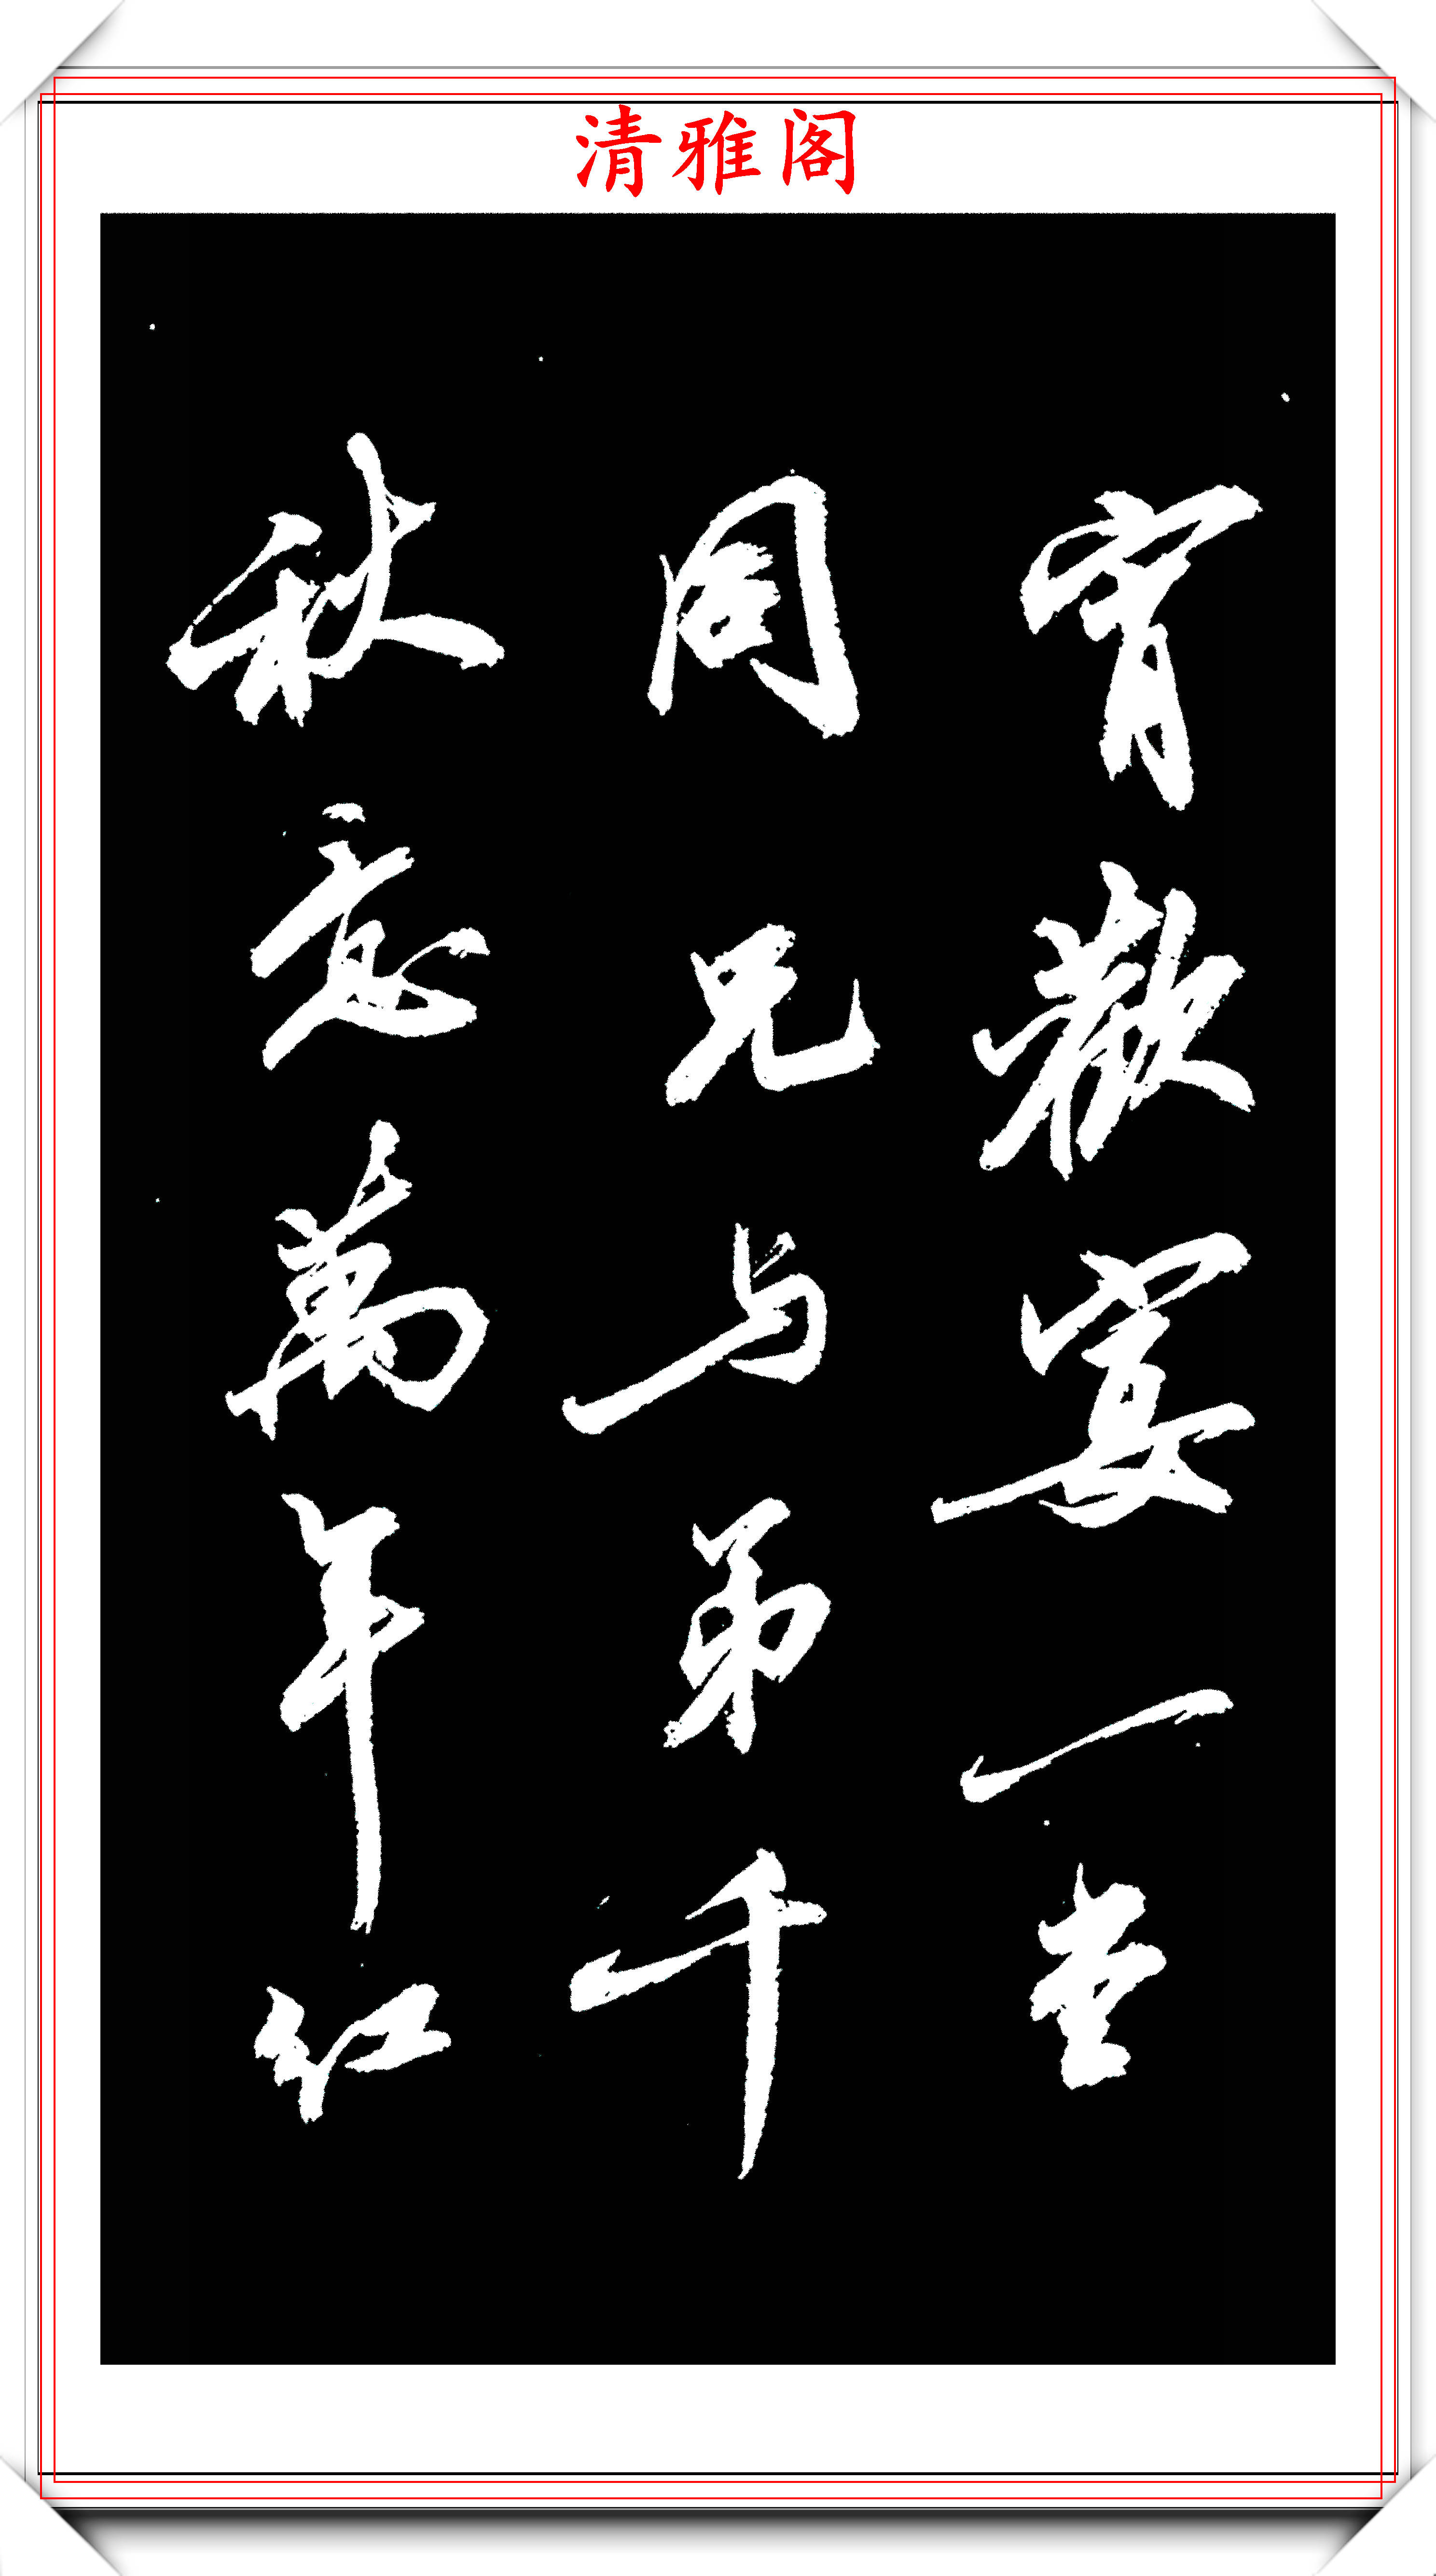 清雅阁
宵歡宴一堂
同兄与弟千
秋意萬年红